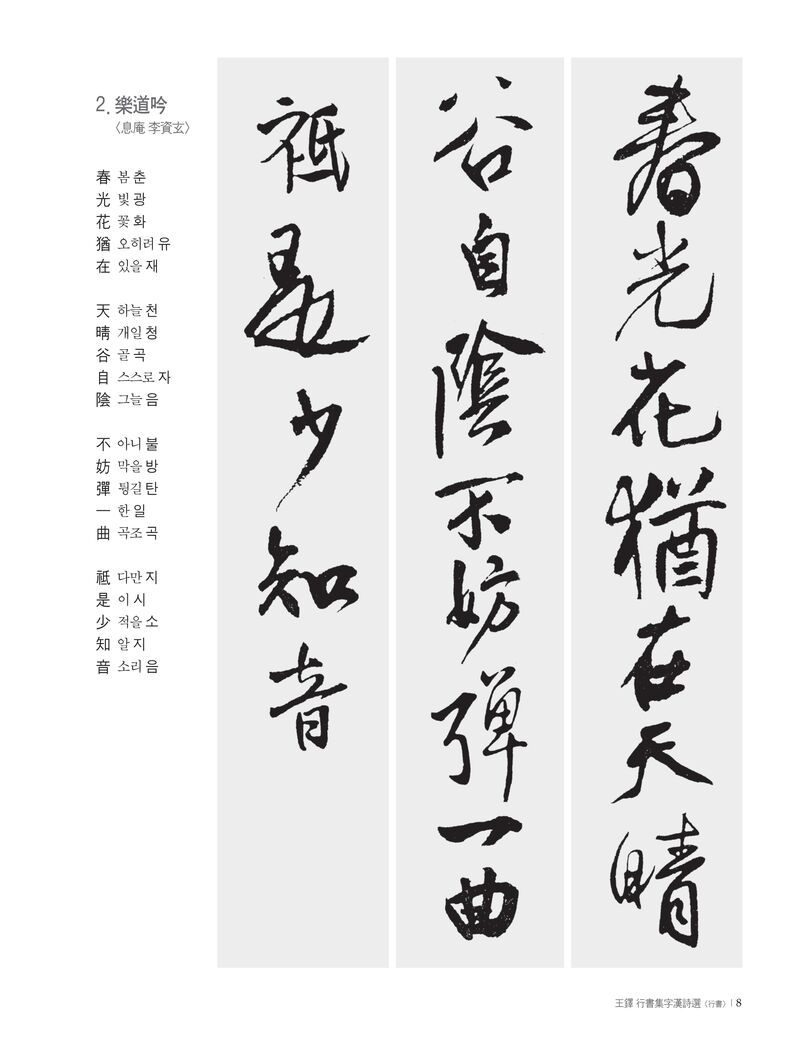 2. 樂道吟
〈息庵 李資玄〉
春 봄 춘
光 빛 광
花 꽃 화
猶 오히려 유
在 있을 재
天 하늘 천
晴 개일 청
谷 골 곡
自 스스로 자
陰 그늘 음
不 아니 불
妨 막을 방
彈 튕길 탄
一 한 일
曲 곡조 곡
祗 다만 지
是 이 시
少 적을 소
知 알 지
音 소리 음
春光花猶在天晴
谷自陰不妨彈一曲
祗是少知音
王鐸 行書集字漢詩選〈行書〉 | 8